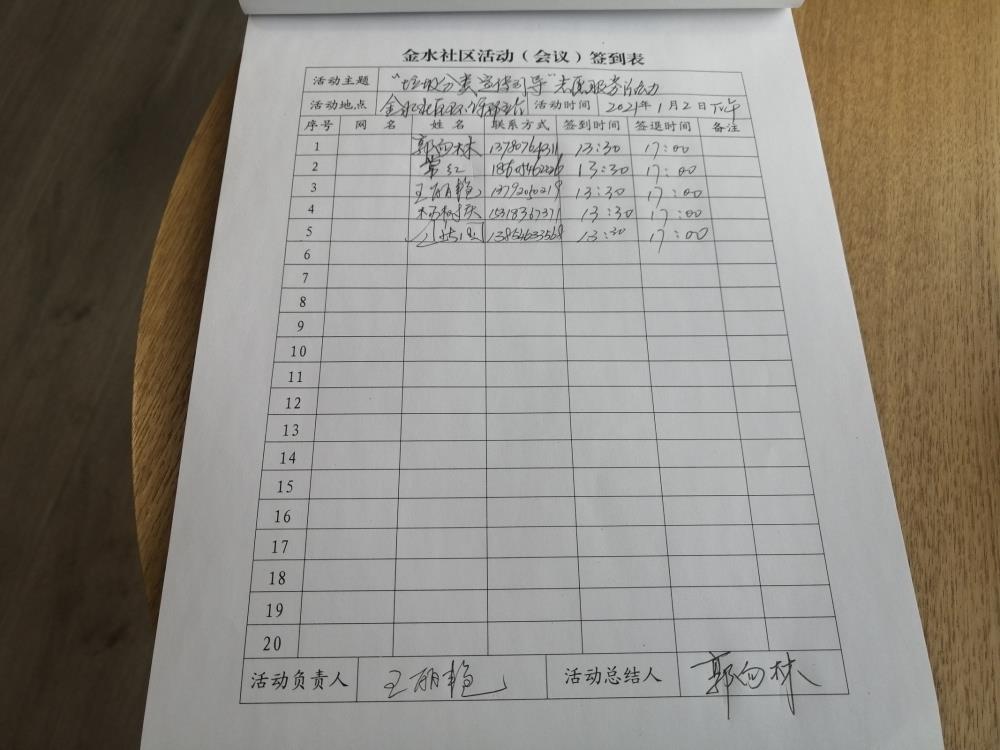 金水社区活动（会议）签到表
活动主题 “垃圾分类宣传引导”志愿服务活动
活动地点 金水社区 活动时间 2021年1月2日下午
序号 网 名 姓 名 联系方式 签到时间 签退时间 备注
1 郭向林 13:30 17:00
2 常红 13:30 17:00
3 王丽艳 13792050219 13:30 17:00
4 15318367371 13:30 17:00
5 13854633568 13:30 17:00
6
7
8
9
10
11
12
13
14
15
16
17
18
19
20
活动负责人 王丽艳 活动总结人 郭向林